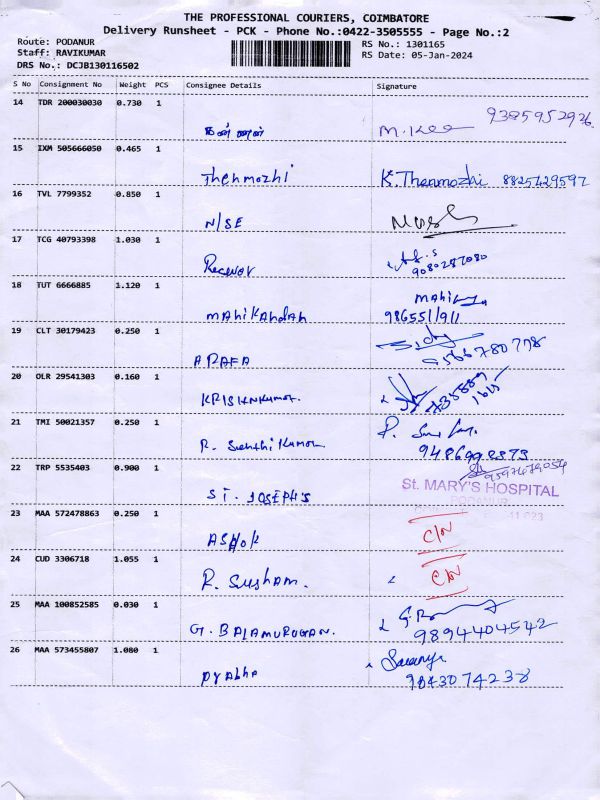 THE PROFESSIONAL COURIERS, COIMBATORE
Delivery Runsheet - PCK - Phone No.:0422-3505555 - Page No.:2
Route: PODANUR
Staff: RAVIKUMAR
DRS No.: DCJB130116502
RS No.: 1301165
RS Date: 05-Jan-2024
S No Consignment No Weight PCS Consignee Details Signature
14 TDR 200030030 0.730 1
9385952926
15 IXM 505666050 0.465 1
Thenmozhi K. Thenmozhi 8825729597
16 TVL 7799352 0.850 1
N/SE
17 TCG 40793398 1.030 1
Receiver
9080287080
18 TUT 6666885 1.120 1
Manikandan
9865511911
19 CLT 30179423 0.250 1
ARAFA 9566780778
20 OLR 29541303 0.160 1
KRISHNKumar.
21 TMI 50021357 0.250 1
R. Senthil Kumar
22 TRP 5535403 0.900 1
ST. JOSEPH'S
St. MARY'S HOSPITAL
PODANUR
23 MAA 572478863 0.250 1
ASHOK C/N
24 CUD 3306718 1.055 1
R. Susham. C/N
25 MAA 100852585 0.030 1
G. BALAMURUGAN. 9894404542
26 MAA 573455807 1.080 1
Saranya
9043074238